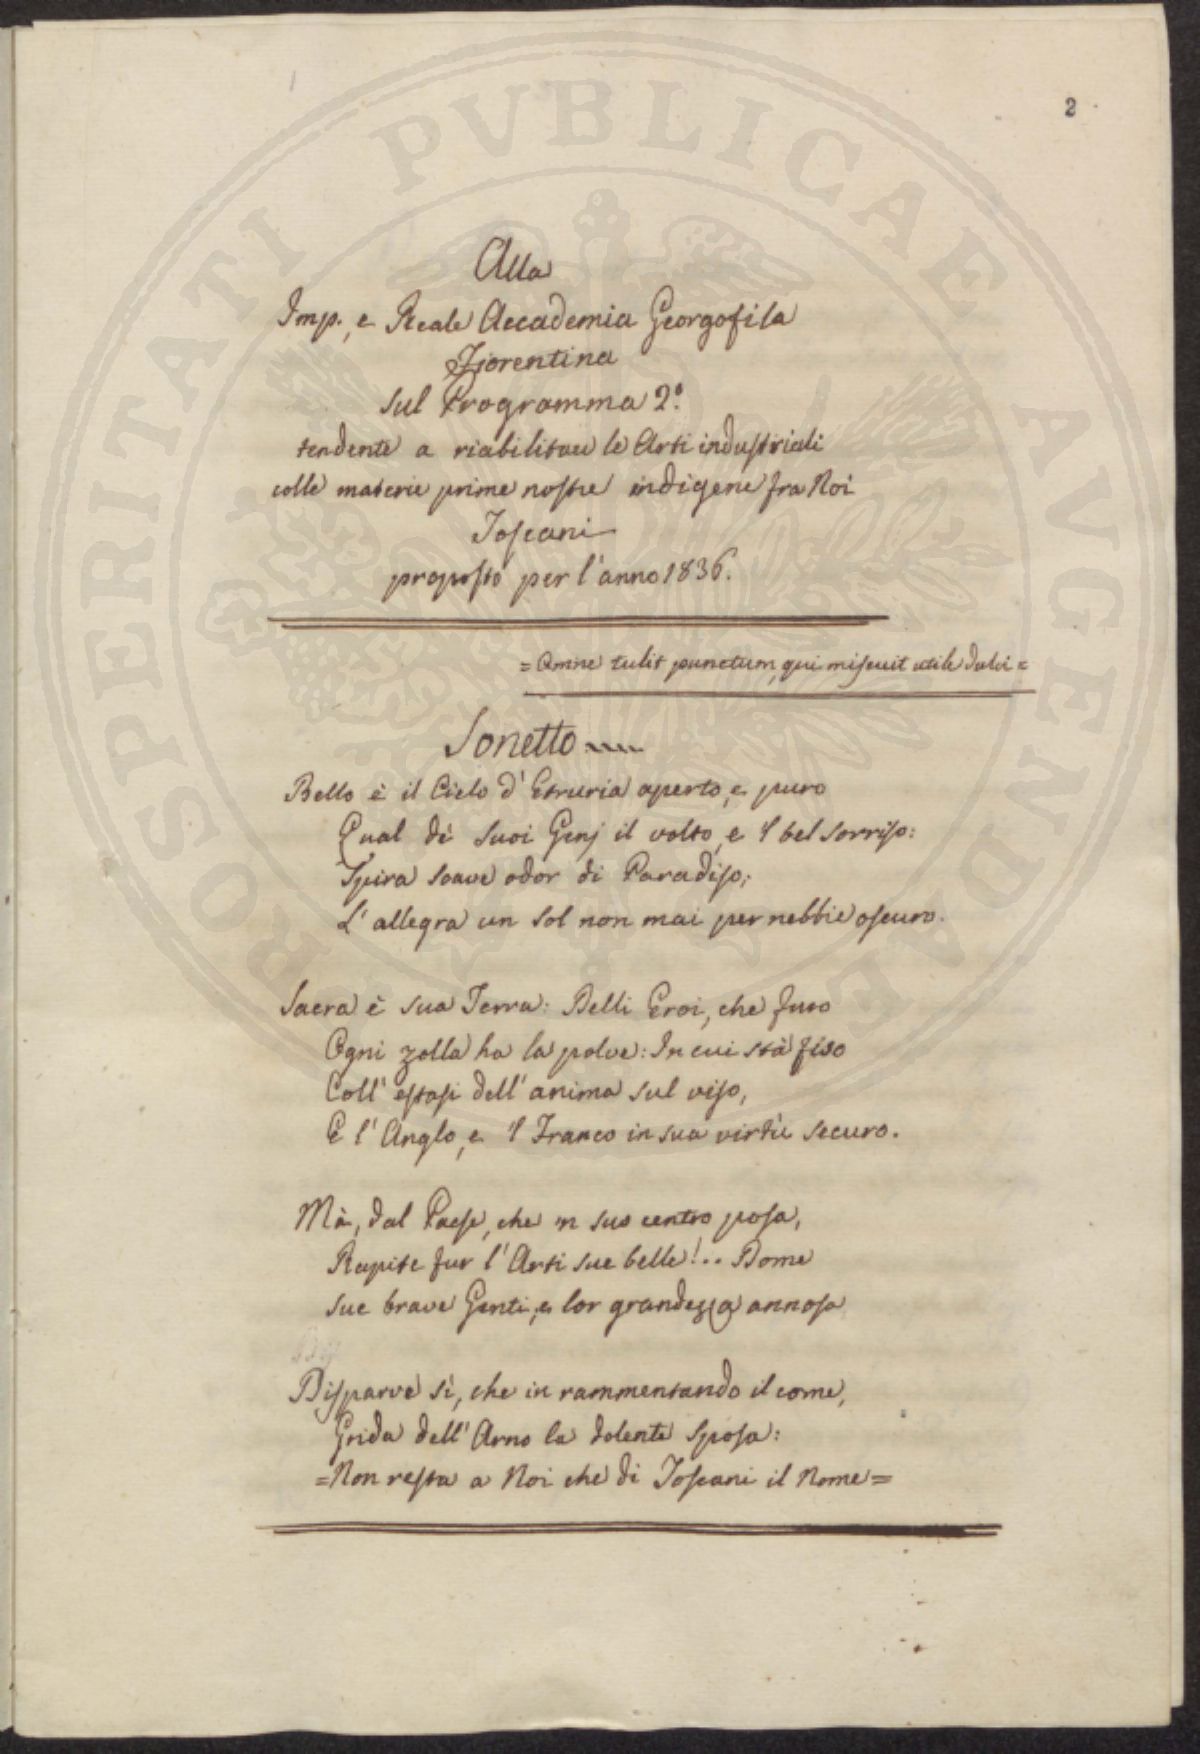 2
Alla
Imp. e Reale Accademia Georgofila
Fiorentina
sul Programma 2°.
tendente a riabilitare le Arti industriali
colle materie prime nostre indigene fra Noi
Toscani
proposto per l'anno 1836.
= Omne tulit punctum, qui miscuit utile dulci =
Sonetto
Bello è il Cielo d'Etruria aperto, e puro
Qual dè suoi Genj il volto, e 'l bel sorriso:
Spira soave odor di Paradiso;
L'allegra un Sol non mai per nebbie oscuro.
Sacra è sua Terra: Delli Eroi, che furo
Ogni zolla ha la polve: In cui stà fiso
Coll'estasi dell'anima sul viso,
E l'Anglo, e 'l Franco in sua virtù securo.
Mà, dal Paese, che in suo centro posa,
Rapite fur l'Arti sue belle!.. Dome
sue brave Genti, e lor grandezza annosa
Disparve sì, che in rammentando il come,
Grida dell'Arno la dolente Sposa:
= Non resta a Noi che di Toscani il Nome =
PROSPERITATI PVBLICAE AVGENDAE